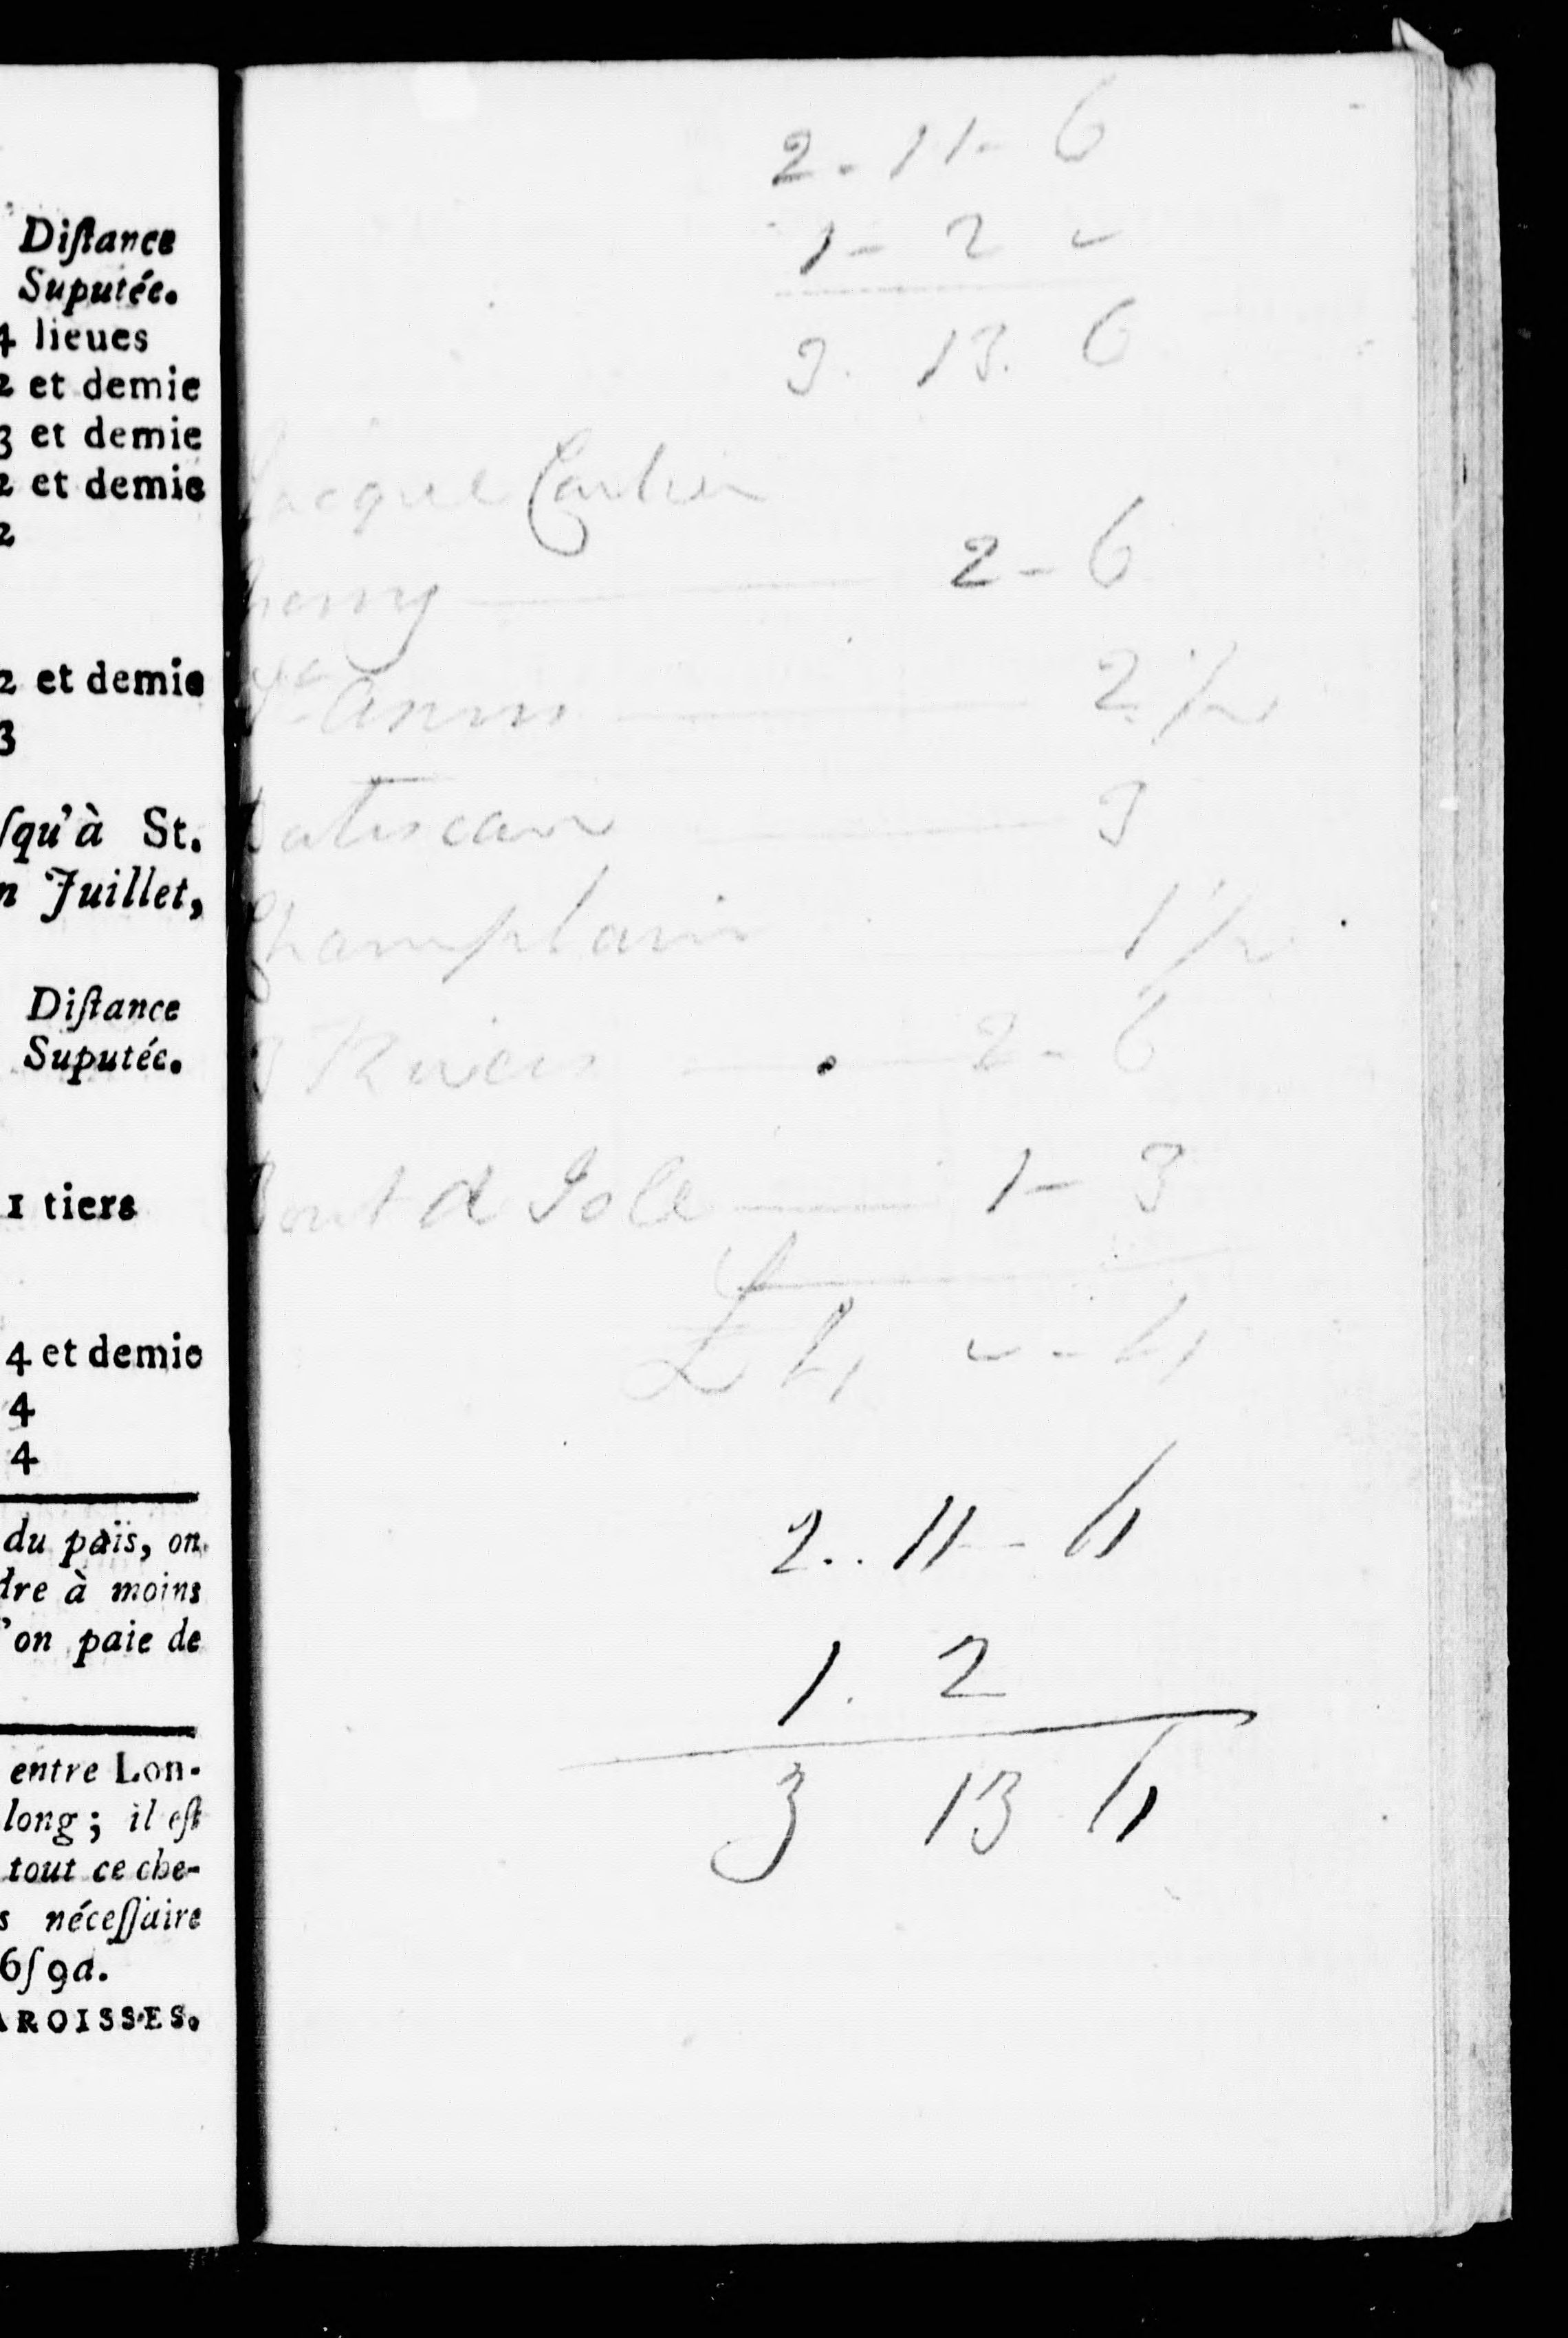 Diſtance
Suputée.
4 lieues
2 et demie
3 et demie
2 et demie
2
2 et demie
3
ſqu'à St.
n Juillet,
Diſtance
Suputée.
1 tiers
4 et demie
4
4
du païs, on
dre à moins
'on paie de
entre Lon-
long; il eſt
tout ce che-
s néceſſaire
6ſ9d.
AROISSES.
2 - 11 - 6
1 - 2 ⌣
3. 13. 6
Jacque Cartier
2 - 6
Ste Anns 2 1/2
Batiscan 3
Champlain 1 1/2
3 Rivers 2 - 6
Pont d Isle 1 - 3
£ 4 ⌣ - 4
2 .. 11 - 6
1. 2
3 13 6